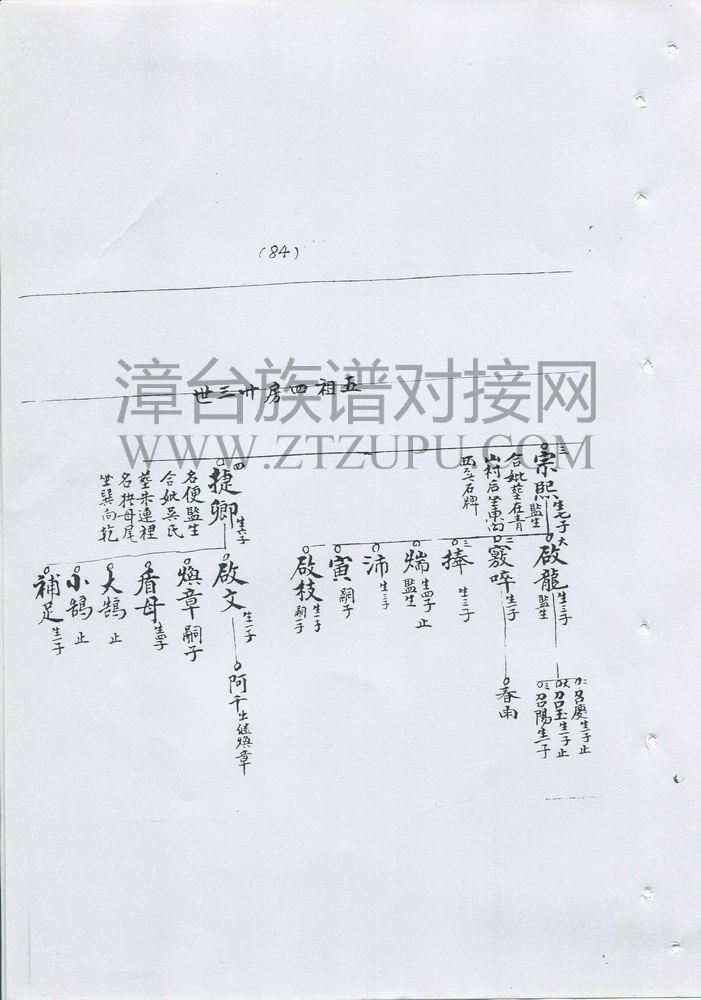 (84)
五祖四房卄三世
漳台族谱对接网
WWW.ZTZUPU.COM
三 宗熙 生七子
監生
合妣塟在青
山村后坐東向
西 石牌
大 啟龍 生三子
監生
二 召慶 生一子 止
大 召玉 生一子 止
三 召陽 生一子
二 啐 生一子
春雨
三 捧 生三子
煓 生四子 止
監生
沛 生三子
寅 嗣子
啟枝 生一子
嗣一子
四 捷卿 生六子
名便監生
合妣吳氏
塟朱連裡
名拱母尾
坐巽向乾
啟文 生一子
阿千 出继煥章
煥章 嗣子
眉母 生四子
大鵠 止
小鵠 止
補足 生一子